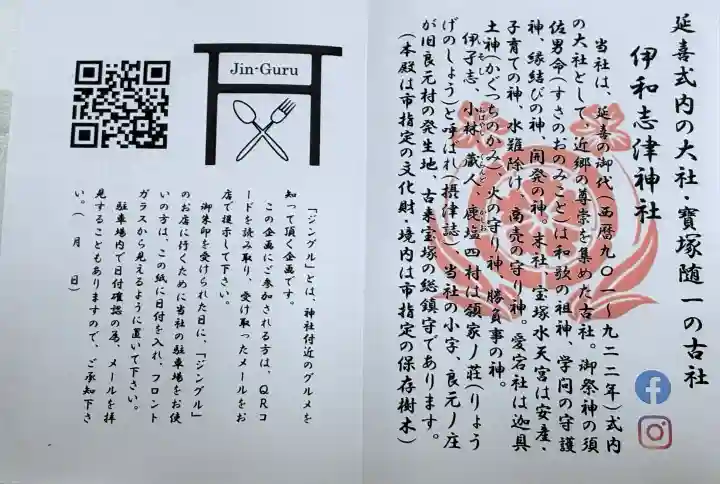 延喜式内の大社・寶塚随一の古社
伊和志津神社
当社は、延喜の御代(西暦九〇一～九二二年)式内
の大社として近郷の尊崇を集めた古社。御祭神の須
佐男命(すさのおのみこと)は和歌の祖神、学問の守護
神、縁結びの神、開発の神。末社、宝塚水天宮は安産、
子育ての神、水難除け、商売の守り神。愛宕社は迦具
土神(かぐつちのかみ)、火の守り神、勝負事の神。
伊孑志、小林、蔵人、鹿塩四村は領家ノ荘(りょう
げのしょう)と呼ばれ(摂津誌)当社の小字、良元ノ庄
が旧良元村の発生地、古来宝塚の総鎮守であります。
(本殿は市指定の文化財・境内は市指定の保存樹木)
Jin-Guru
「ジングル」とは、神社付近のグルメを
知って頂く企画です。
この企画にご参加される方は、QRコ
ードを読み取り、受け取ったメールをお
店で提示して下さい。
御朱印を受けられた日に、「ジングル」
のお店に行くために当社の駐車場をお使
いの方は、この紙に日付を入れ、フロント
ガラスから見えるように置いて下さい。
駐車場内で日付確認の為、メールを拝
見することもありますので、ご承知下さ
い。(　月　日)